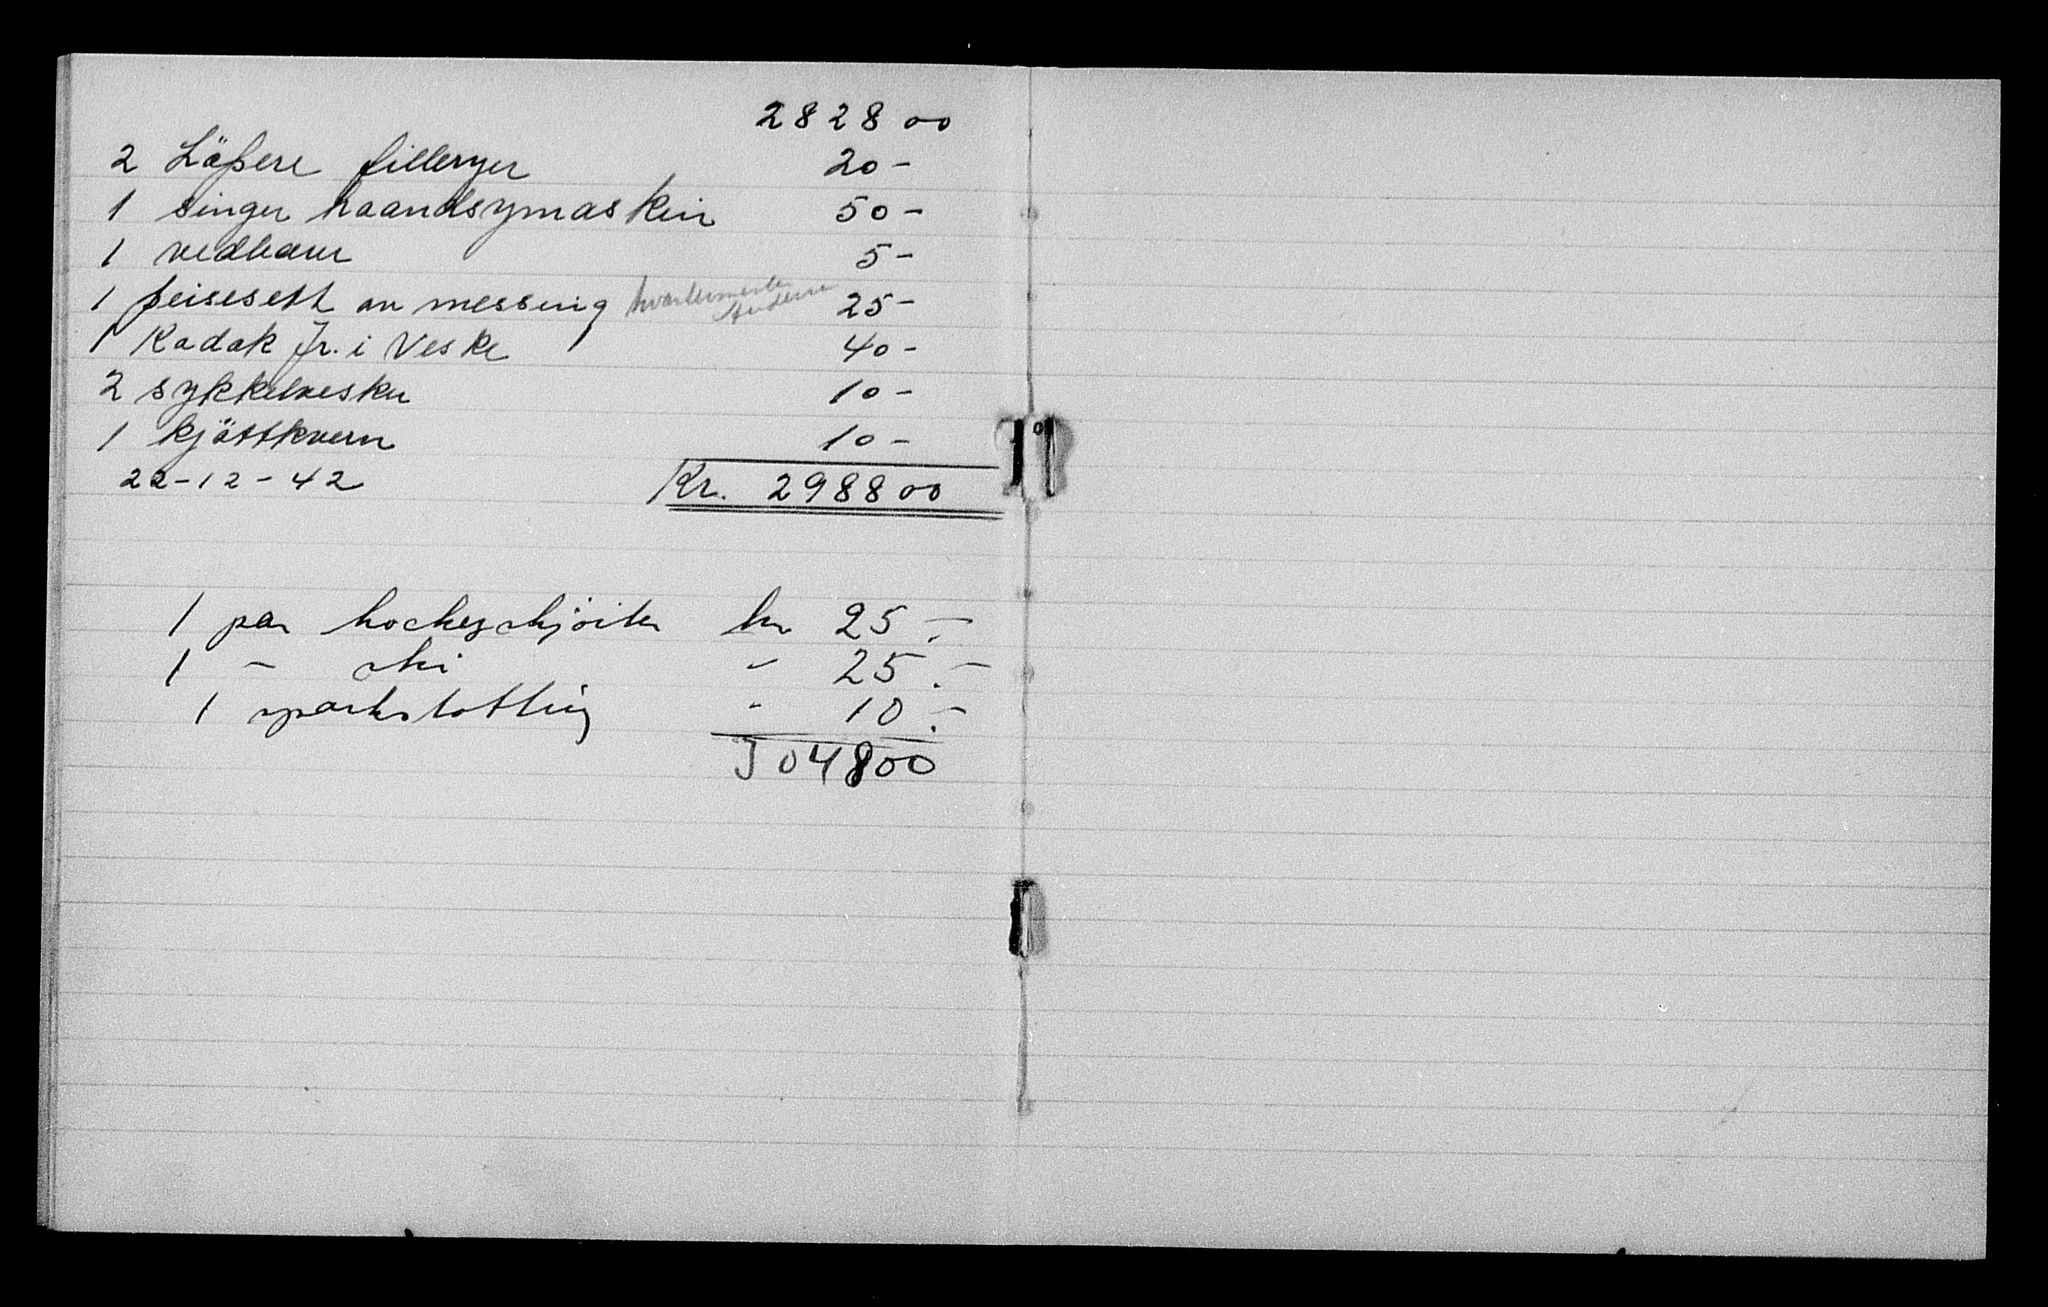 2828 00
2 Löpere filleryer 20 -
1 singer haandsymaskin 50 -
1 vedkurv 5 -
1 peisesett av messing kvartermester 25 -
1 Kodak Jr. i Veske 40 -
2 sykkelvesker 10 -
1 kjöttkvern 10 -
22-12-42 Kr. 2988 00
1 par hockeyskjöiter kr 25.-
1 - ski " 25.-
1 sparkstotting " 10.-
3048 00